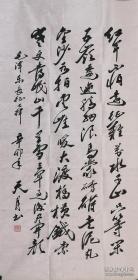 红军不怕远征难万水千山只等闲
五岭逶迤腾细浪乌蒙磅礴走泥丸
金沙水拍云崖暖大渡桥横铁索
寒更喜岷山千里雪三军过后尽开颜
毛泽东长征诗 辛卯年 天月书